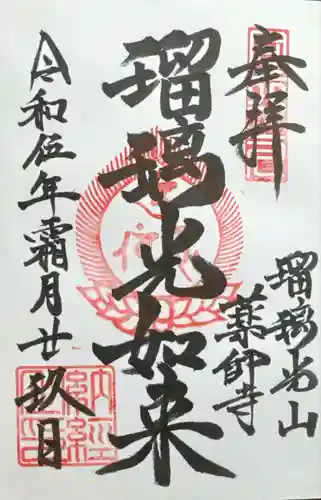 奉拝
瑠璃光山
薬師寺
瑠璃光如来
令和伍年霜月廿
玖日
納経